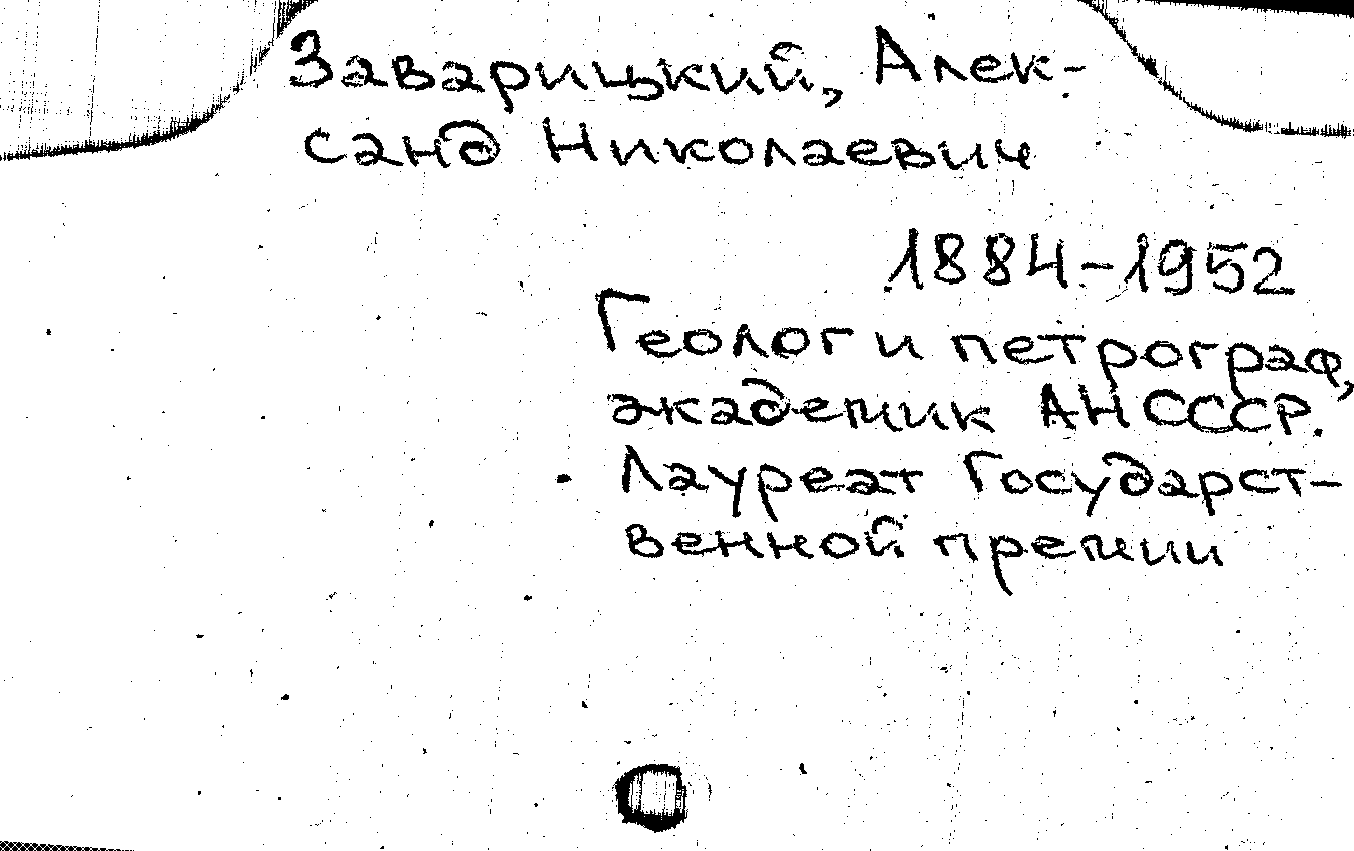 Заварицкий, Алек-
санд Николаевич
1884-1952
Геолог и петрограф,
академик АН СССР.
Лауреат Государст-
венной премии